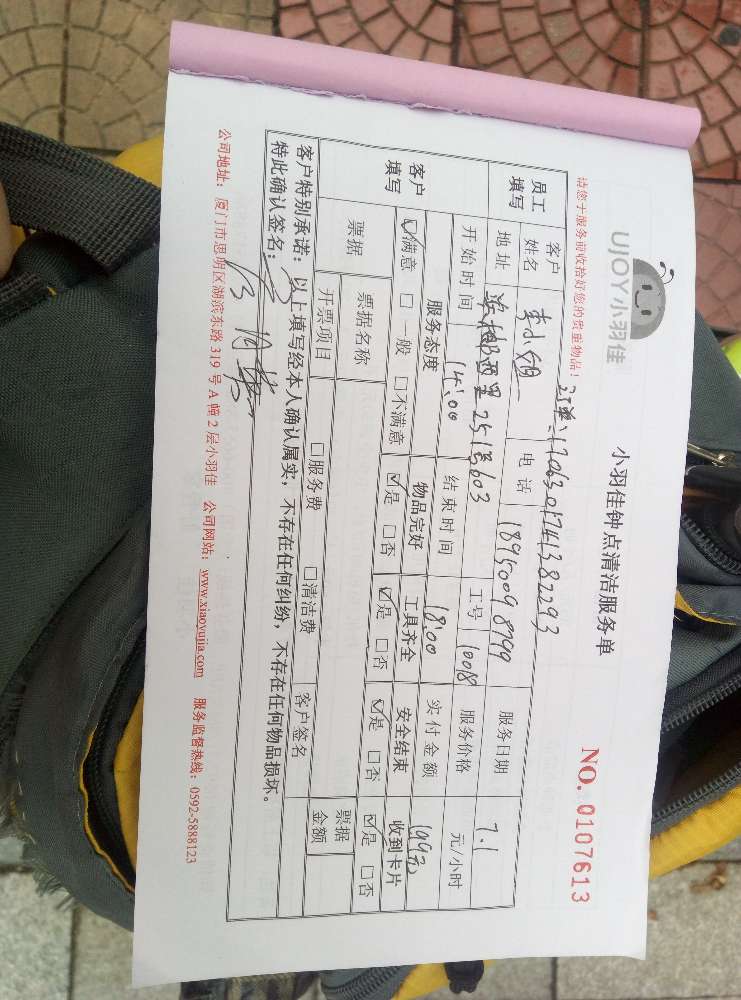 UJOY小羽佳
小羽佳钟点清洁服务单
NO. 0107613
请您于服务前收拾好您的贵重物品!
订单:1706301741382293
员工填写 客户姓名 李小姐 电话 18950098799 服务日期 7.1
地址 西里25号603 工号 10018 服务价格 元/小时
开始时间 14:00 结束时间 18:00 实付金额 199元
客户填写 服务态度 物品完好 工具齐全 安全结束 收到卡片
☑满意 □一般 □不满意 ☑是 □否 ☑是 □否 ☑是 □否 ☑是 □否
票据 票据名称 □服务费 □清洁费 客户签名 票据金额
开票项目
客户特别承诺:以上填写经本人确认属实,不存在任何纠纷,不存在任何物品损坏。
特此确认签名:
公司地址:厦门市思明区湖滨东路319号A幢2层小羽佳 公司网站:www.xiaoyujia.com 服务监督热线:0592-5888123